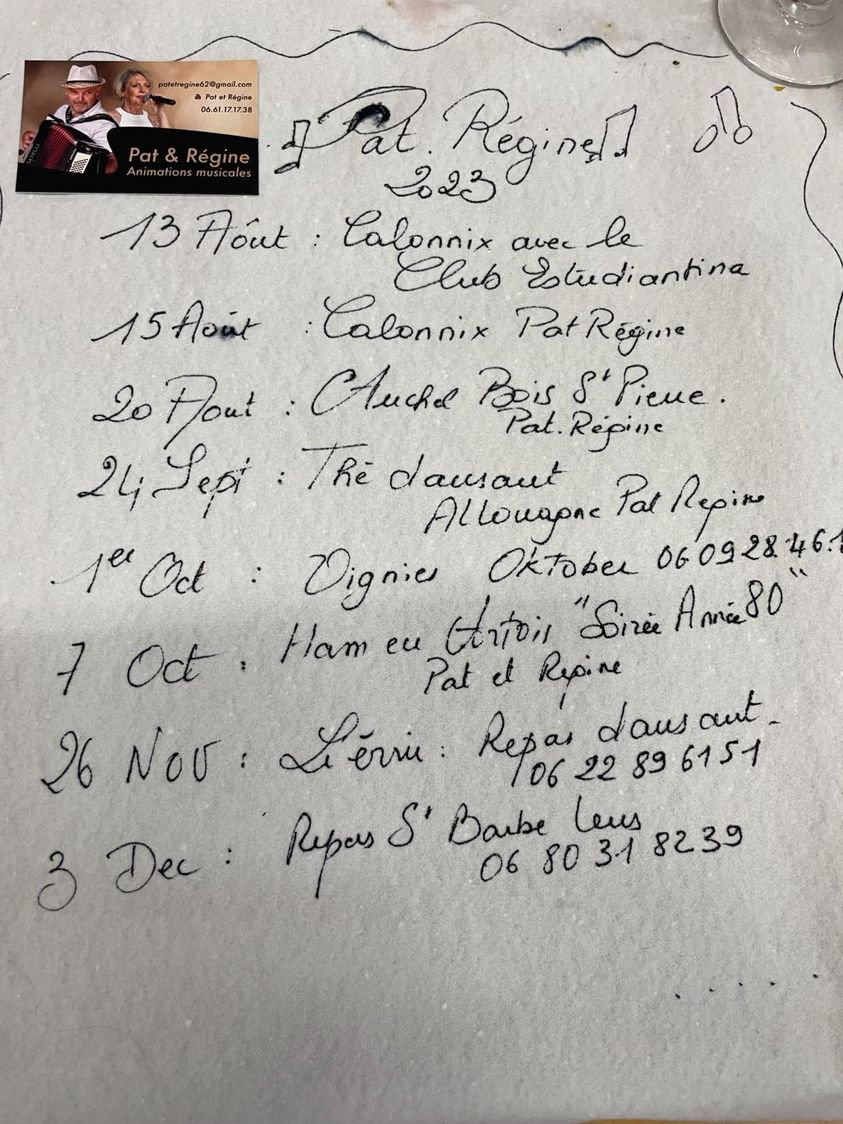 patetregine62@gmail.com
Pat et Régine
06.61.17.17.38
Pat & Régine
Animations musicales
Pat. Régine
2023
13 Aôut : Calonnix avec le
Club Estudiantina
15 Août : Calonnix Pat Régine
20 Aout : Auchel Bois St Pierre.
Pat. Régine
24 Sept : Thé dansant
Allouagne Pat Regine
1er Oct : Oignies Oktober 06 09 28.46.
7 Oct : Ham en Artois "Soirée Année 80"
Pat et Regine
26 Nov : Repas dansant
06 22 89 61 51
3 Dec : Repas St Barbe Lens
06 80 31 82 39